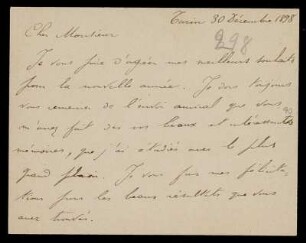 Turin 30 Décembre 1898
298
Cher Monsieur
Je vous prie d'agréer mes meilleurs souhaits
pour la nouvelle année. Je dois toujours
vous remercier de l'envoi amical que vous
m'avez fait de vos beaux et intéressants
mémoires, que j'ai étudiés avec le plus
grand plaisir. Je vous fais mes félicita-
tions pour les beaux résultats que vous
avez trouvés.